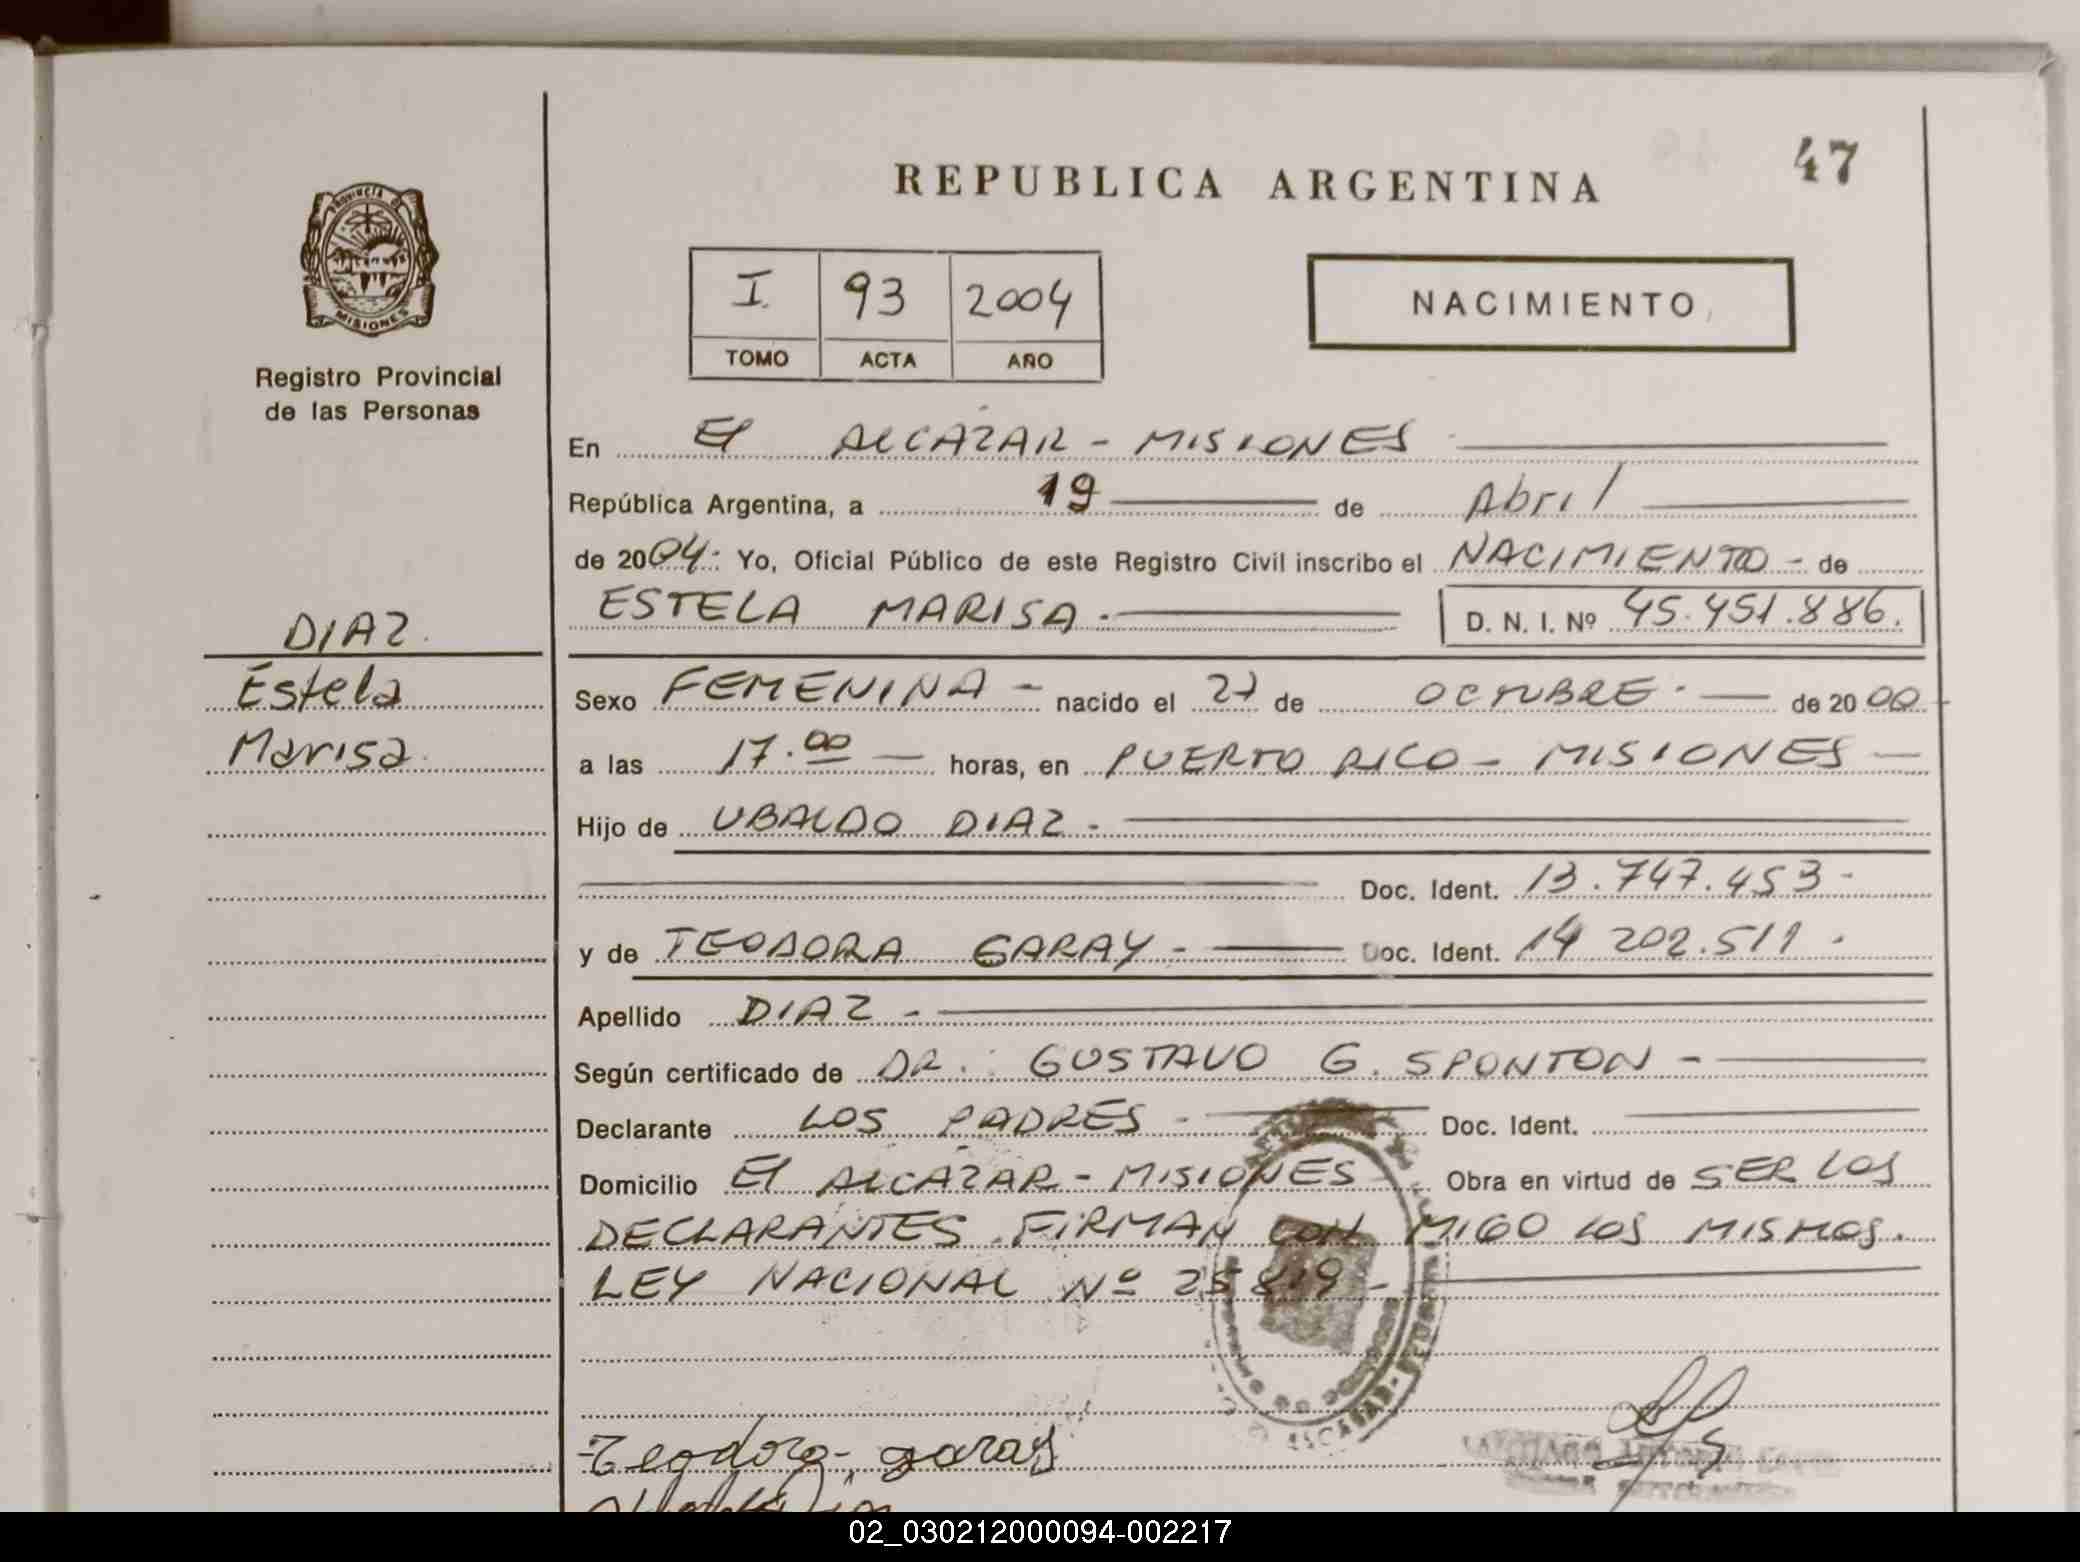 47
REPUBLICA ARGENTINA
PROVINCIA DE
MISIONES
Registro Provincial
de las Personas
I. 93 2004
TOMO ACTA AÑO
NACIMIENTO
En El ALCAZAR - MISIONES
República Argentina, a 19 de Abril
de 2004. Yo, Oficial Público de este Registro Civil inscribo el NACIMIENTO - de
ESTELA MARISA. D. N. I. Nº 45.451.886.
DIAZ.
Estela
Marisa.
Sexo FEMENINA - nacido el 27 de OCTUBRE. de 2000
a las 17.00 horas, en PUERTO RICO - MISIONES
Hijo de UBALDO DIAZ.
Doc. Ident. 13.747.453-
y de TEODORA GARAY - Doc. Ident. 14 202.511.
Apellido DIAZ -
Según certificado de DR. GUSTAVO G. SPONTON -
Declarante LOS PADRES - Doc. Ident.
Domicilio El ALCAZAR - MISIONES Obra en virtud de SER LOS
DECLARANTES. FIRMAN CON MIGO LOS MISMOS.
LEY NACIONAL Nº 25819 -
Teodora garay
02_030212000094-002217